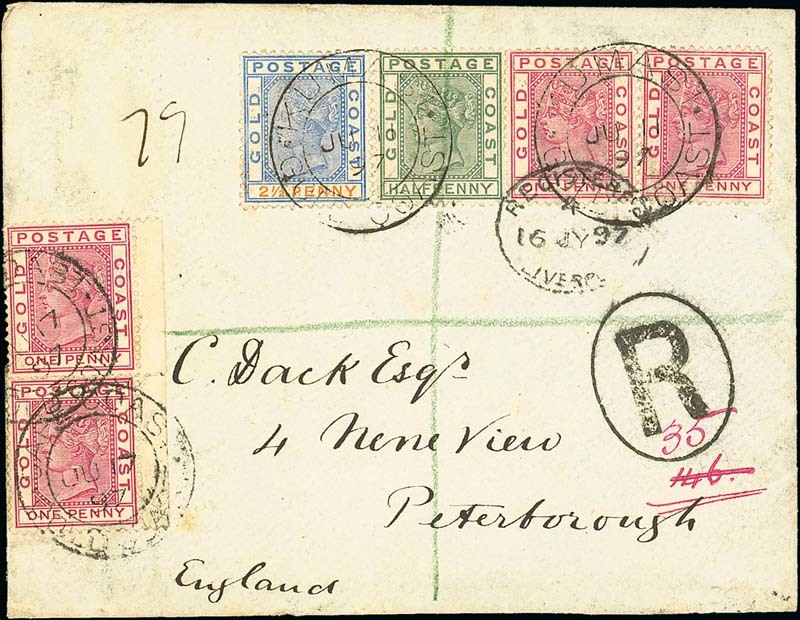 79
POSTAGE
GOLD
COAST
2½ PENNY
POSTAGE
GOLD
COAST
HALFPENNY
POSTAGE
GOLD
COAST
ONE PENNY
POSTAGE
GOLD
PENNY
REGISTERED
16 JY 97
LIVERPOOL
POSTAGE
GOLD
COAST
ONE PENNY
POSTAGE
GOLD
COAST
ONE PENNY
R
35
146.
C. Dack Esqr
4 Nene View
Peterborough
England